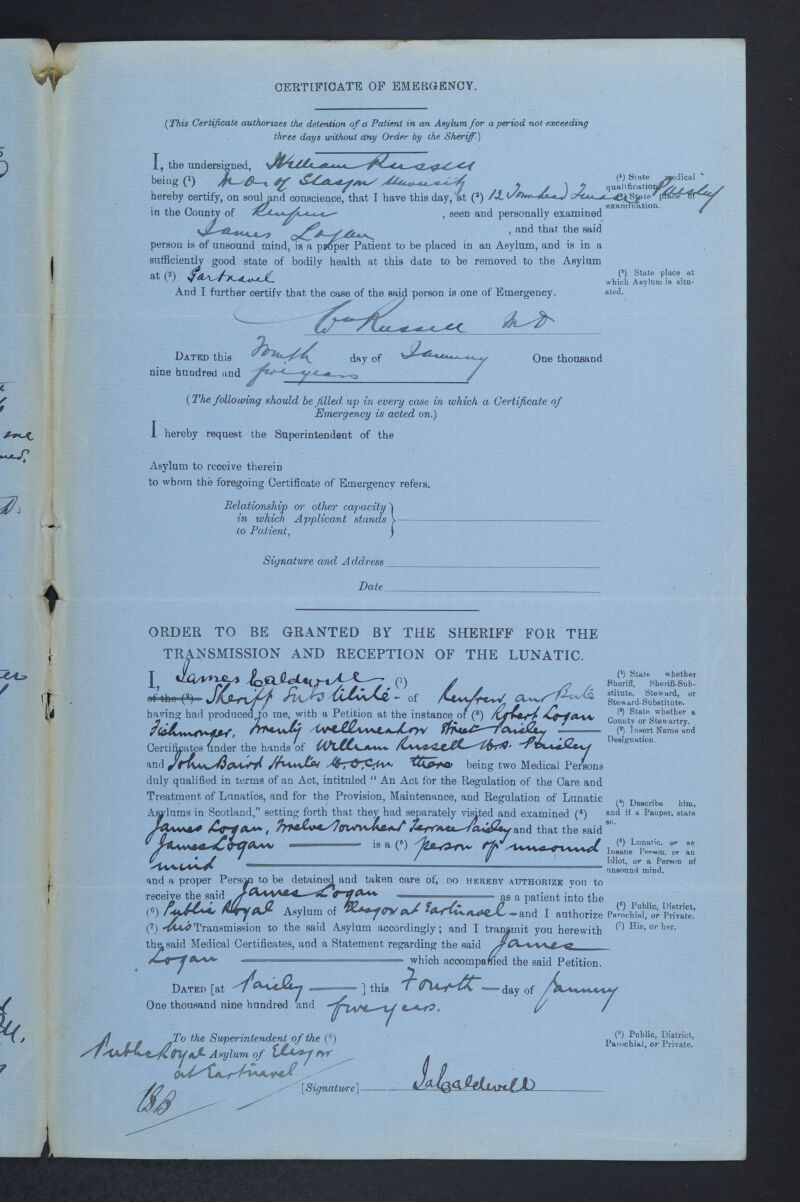 CERTIFICATE OF EMERGENCY.
(This Certificate authorizes the detention of a Patient in an Asylum for a period not exceeding
three days without any Order by the Sheriff)
I, the undersigned, William Russell
being (¹) M.D. of Glasgow University
(¹) State medical
qualification.
hereby certify, on soul and conscience, that I have this day, at (²) 12 Townhead Terrace Paisley
(²) State place of
examination.
in the County of Renfrew, seen and personally examined
James Logan, and that the said
person is of unsound mind, is a proper Patient to be placed in an Asylum, and is in a
sufficiently good state of bodily health at this date to be removed to the Asylum
at (³) Gartnavel
(³) State place at
which Asylum is situ-
ated.
And I further certify that the case of the said person is one of Emergency.
Wm Russell MD
DATED this Fourth day of January One thousand
nine hundred and five years
(The following should be filled up in every case in which a Certificate of
Emergency is acted on.)
I hereby request the Superintendent of the
Asylum to receive therein
to whom the foregoing Certificate of Emergency refers.
Relationship or other capacity
in which Applicant stands
to Patient,
Signature and Address
Date
ORDER TO BE GRANTED BY THE SHERIFF FOR THE
TRANSMISSION AND RECEPTION OF THE LUNATIC.
I, James Caldwell (¹)
of the (²) Sheriff Substitute - of Renfrew and Bute
(¹) State whether
Sheriff, Sheriff-Sub-
stitute, Steward, or
Steward-Substitute.
having had produced to me, with a Petition at the instance of (³) Robert Logan
(²) State whether a
County or Stewartry.
Fishmonger, Twenty wellmeadow Street Paisley
(³) Insert Name and
Designation.
Certificates under the hands of William Russell M.D. Paisley
and John Baird Hunter there being two Medical Persons
duly qualified in terms of an Act, intituled "An Act for the Regulation of the Care and
Treatment of Lunatics, and for the Provision, Maintenance, and Regulation of Lunatic
Asylums in Scotland," setting forth that they had separately visited and examined (⁴)
(⁴) Describe him,
and if a Pauper, state
so.
James Logan, Twelve Townhead Terrace Paisley and that the said
James Logan is a (⁵) person of unsound
mind
(⁵) Lunatic, or an
Insane Person, or an
Idiot, or a Person of
unsound mind.
and a proper Person to be detained and taken care of, DO HEREBY AUTHORIZE you to
receive the said James Logan as a patient into the
(⁶) Public Royal Asylum of Glasgow at Gartnavel - and I authorize
(⁶) Public, District,
Parochial, or Private.
(⁷) his Transmission to the said Asylum accordingly; and I transmit you herewith
(⁷) His, or her.
the said Medical Certificates, and a Statement regarding the said James
Logan which accompanied the said Petition.
DATED [at Paisley ] this Fourth day of January
One thousand nine hundred and five years.
To the Superintendent of the (⁸)
(⁸) Public, District,
Parochial, or Private.
Public Royal Asylum of Glasgow
at Gartnavel
[Signature] Ja Caldwell